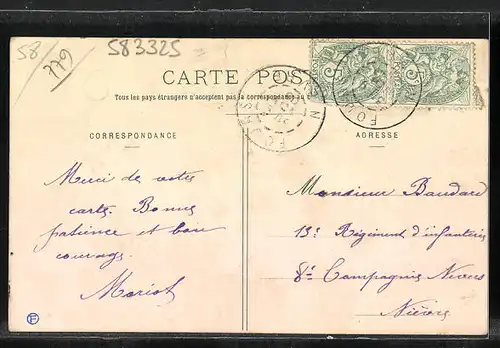 58/779
583325
CARTE POS
Tous les pays étrangers n'acceptent pas la correspondance au
CORRESPONDANCE
ADRESSE
Merci de votre
carte. Bonne
patience et bon
courage.
Moriot
Monsieur Baudard
13e Régiment d'infanterie
8e Compagnie Nevers
Nièvre
5
5
F